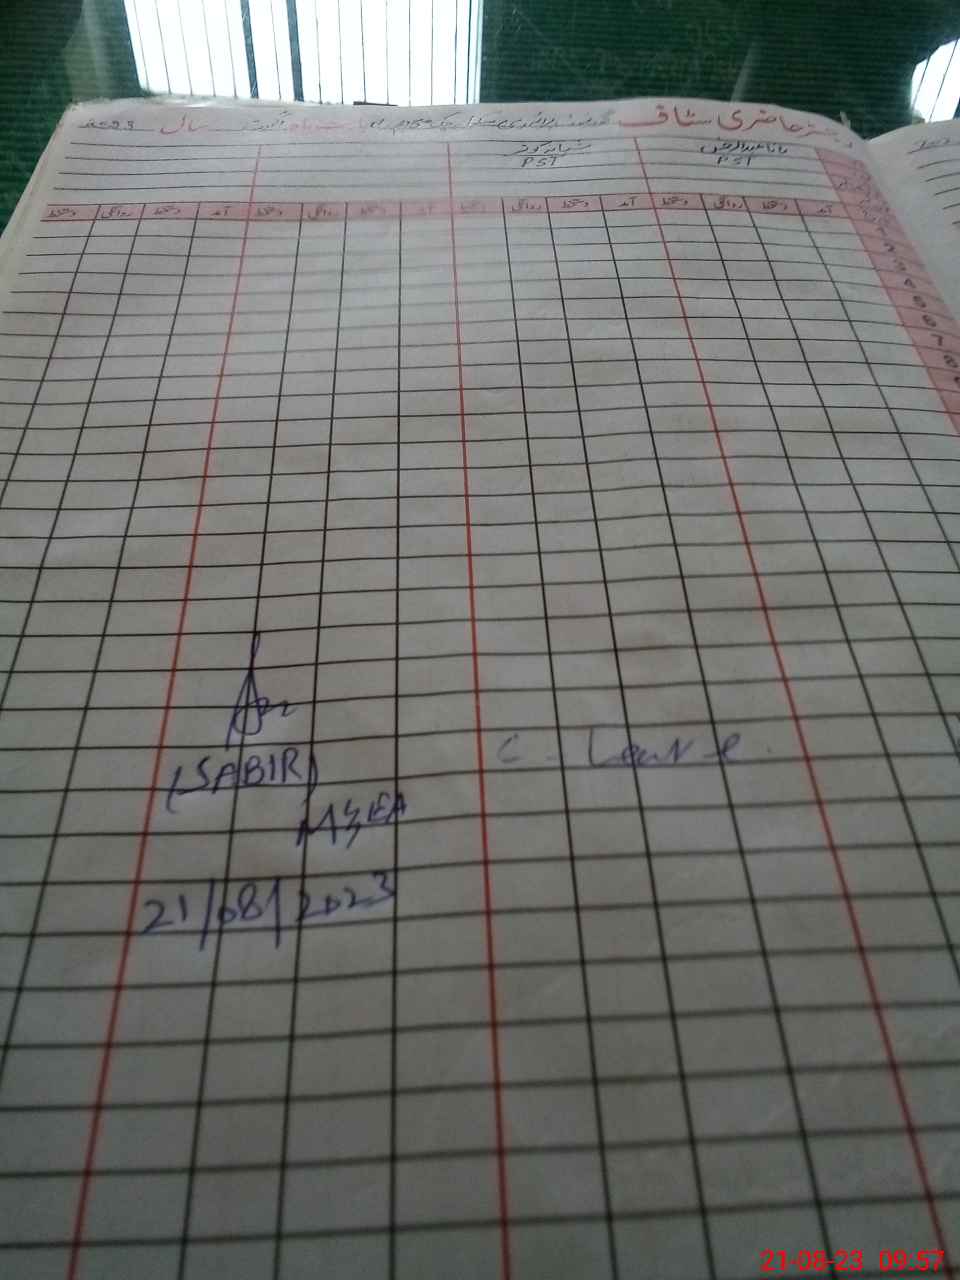 رجسٹر حاضری سٹاف گورنمنٹ پرائمری سکول بابت ماہ اگست سال 2023ء
رانا عبدالرحمٰن
PST
PST
آمد دستخط روانگی دستخط آمد دستخط روانگی دستخط آمد دستخط روانگی دستخط آمد دستخط روانگی دستخط
1
2
3
4
5
6
7
8
C. Leave
(SABIR)
MEA
21/08/2023
21-08-23 09:57